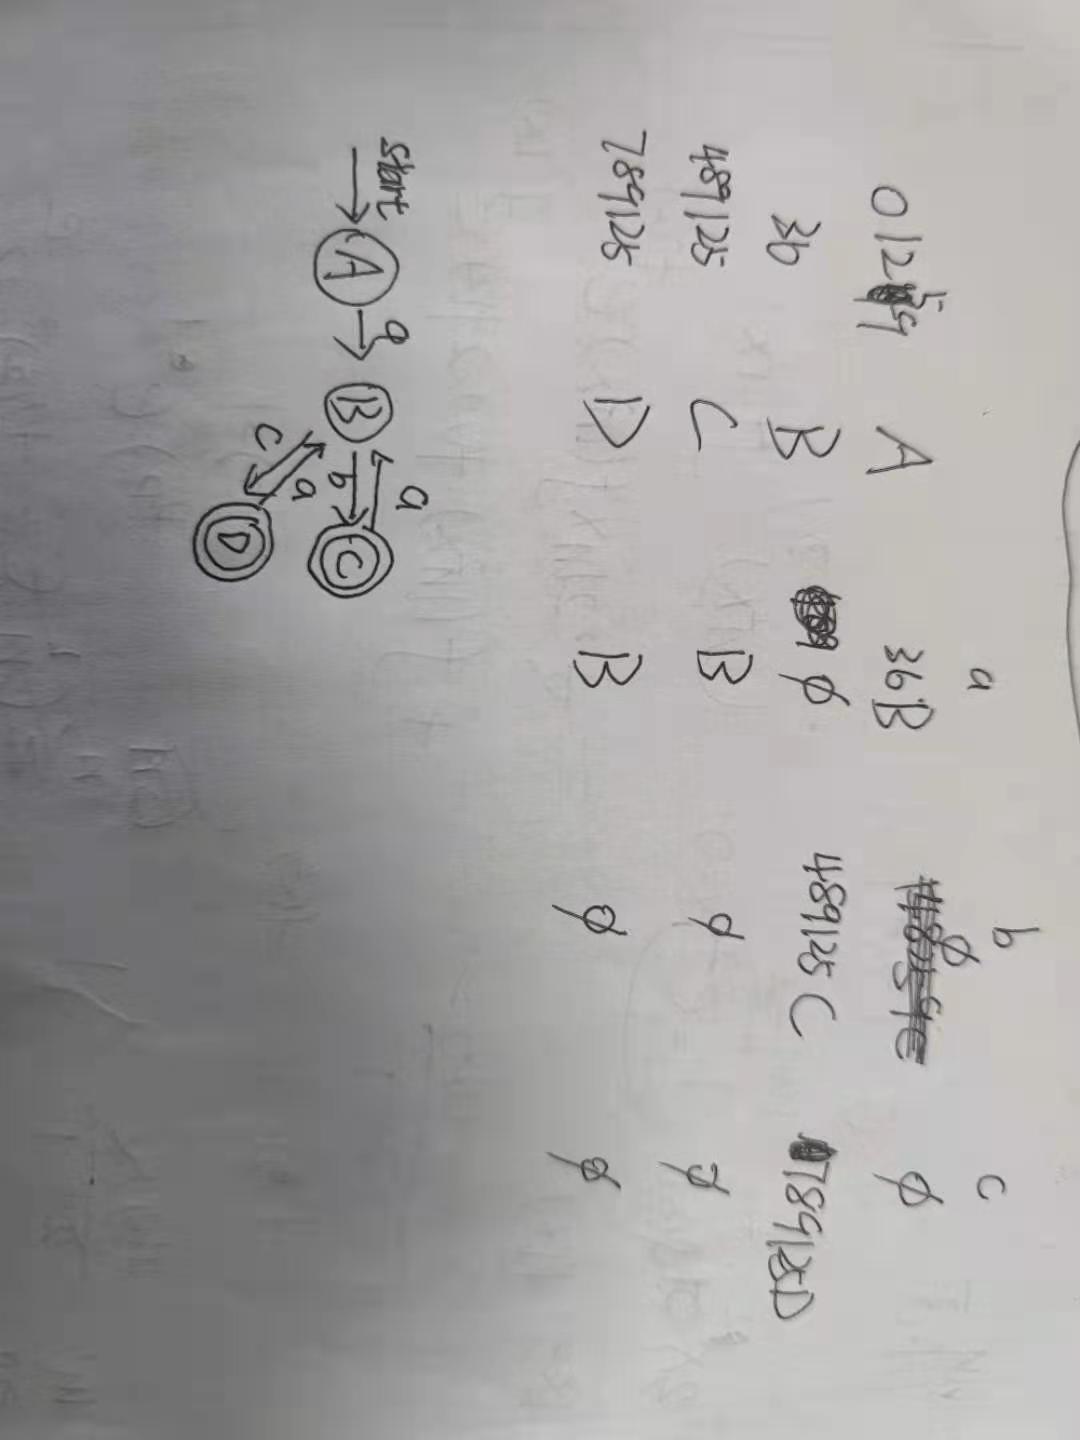 a b c
0 1 2 5 9 A 36B ϕ ϕ
36 B ϕ 489125 C 789125D
489125 C B ϕ ϕ
789125 D B ϕ ϕ
start A a B b C a
c a D